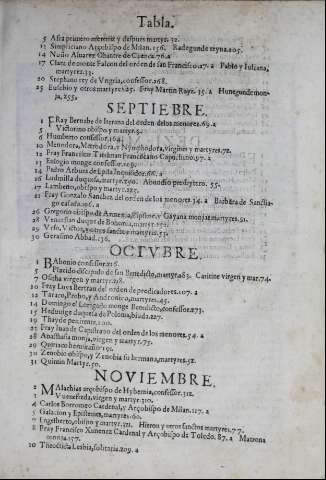 Tabla.
5 Afra primero meretriz y despues martyr.32.
13 Simpliciano Arçobispo de Milan.136. Radegunde reyna.105.
14 Nuño Aluarez Obantre de Cuenca.76.a
17 Clara de monte Falcon del orden de san Francisco.17.a Pablo y Iuliana,
martyres.33.
20 Stephano rey de Vngria, confessor.268.
25 Eusebio y otros martyres.25. Fray Martin Ruyz.35.a Hunegunde mon-
ja.255.
SEPTIEBRE.
1 FRay Bernabe de Iterana del orden de los menores.69.a
5 Victorino obispo y martyr.9.
6 Humberto confessor.164.
10 Menodora, Metrodora, y Nymphodora, virgines y martyres.72.
12 Fray Francisco Titelman Franciscano Capuchino.97.a
13 Eulogio monge confessor.
14 Pedro Arbues de Epila Inquisidor.66.a
16 Ludmilla duquesa, martyr.290. Abundio presbytero. 55.
17 Lamberto, obispo y martyr.
21 Fray Gonzalo Sanchez del orden de los menores.34.a Barbara de Santia-
go casada.106.a
26 Gregorio obispo de Armenia, Ripsime y Gayana monjas martyres.51.
28 Venceslao duque de Bohemia, martyr.
29 y otros sanctos martyres.
30 Gerasimo Abbad.136.
OCTVBRE.
1 BAbonio confessor.216.
5 Placido discipulo de san Benedicto, martyr.83. Caritine virgen y mar.74.
7 Ositha virgen y martyr.218.
10 Fray Luys Bertran del orden de predicadores.107.a
12 Taraco, Probo, y Andronico, martyres.45.
14 Domingo el Lorigado monge Benedicto, confessor.273.
15 Heduuige duquesa de Polonia, biuda.227.
19 Thayde penitente.100.
23 Fray Iuan de Capistrano del orden de los menores.54.a
28 Anastasia monja, virgen y martyr.75.
29 Quiriaco hermitaño.191.
30 Zenobio obispo, y Zenobia su hermana, martyres.52.
31 Quintin Martyr.50.
NOVIEMBRE.
2 MAlachias arçobispo de Hybernia, confessor.312.
3 Vvenefreda, virgen y martyr.310.
4 Carlos Borromeo Cardenal, y Arçobispo de Milan.117.a
5 Galacion y Epistema, martyres.60.
7 Engelberto, obispo y martyr.321. Hieron y otros sanctos martyres.77.
8 Fray Francisco Ximenez Cardenal y Arçobispo de Toledo. 87.a Matrona
monja.157.
10 Theoctista Lesbia, solitaria.209.a